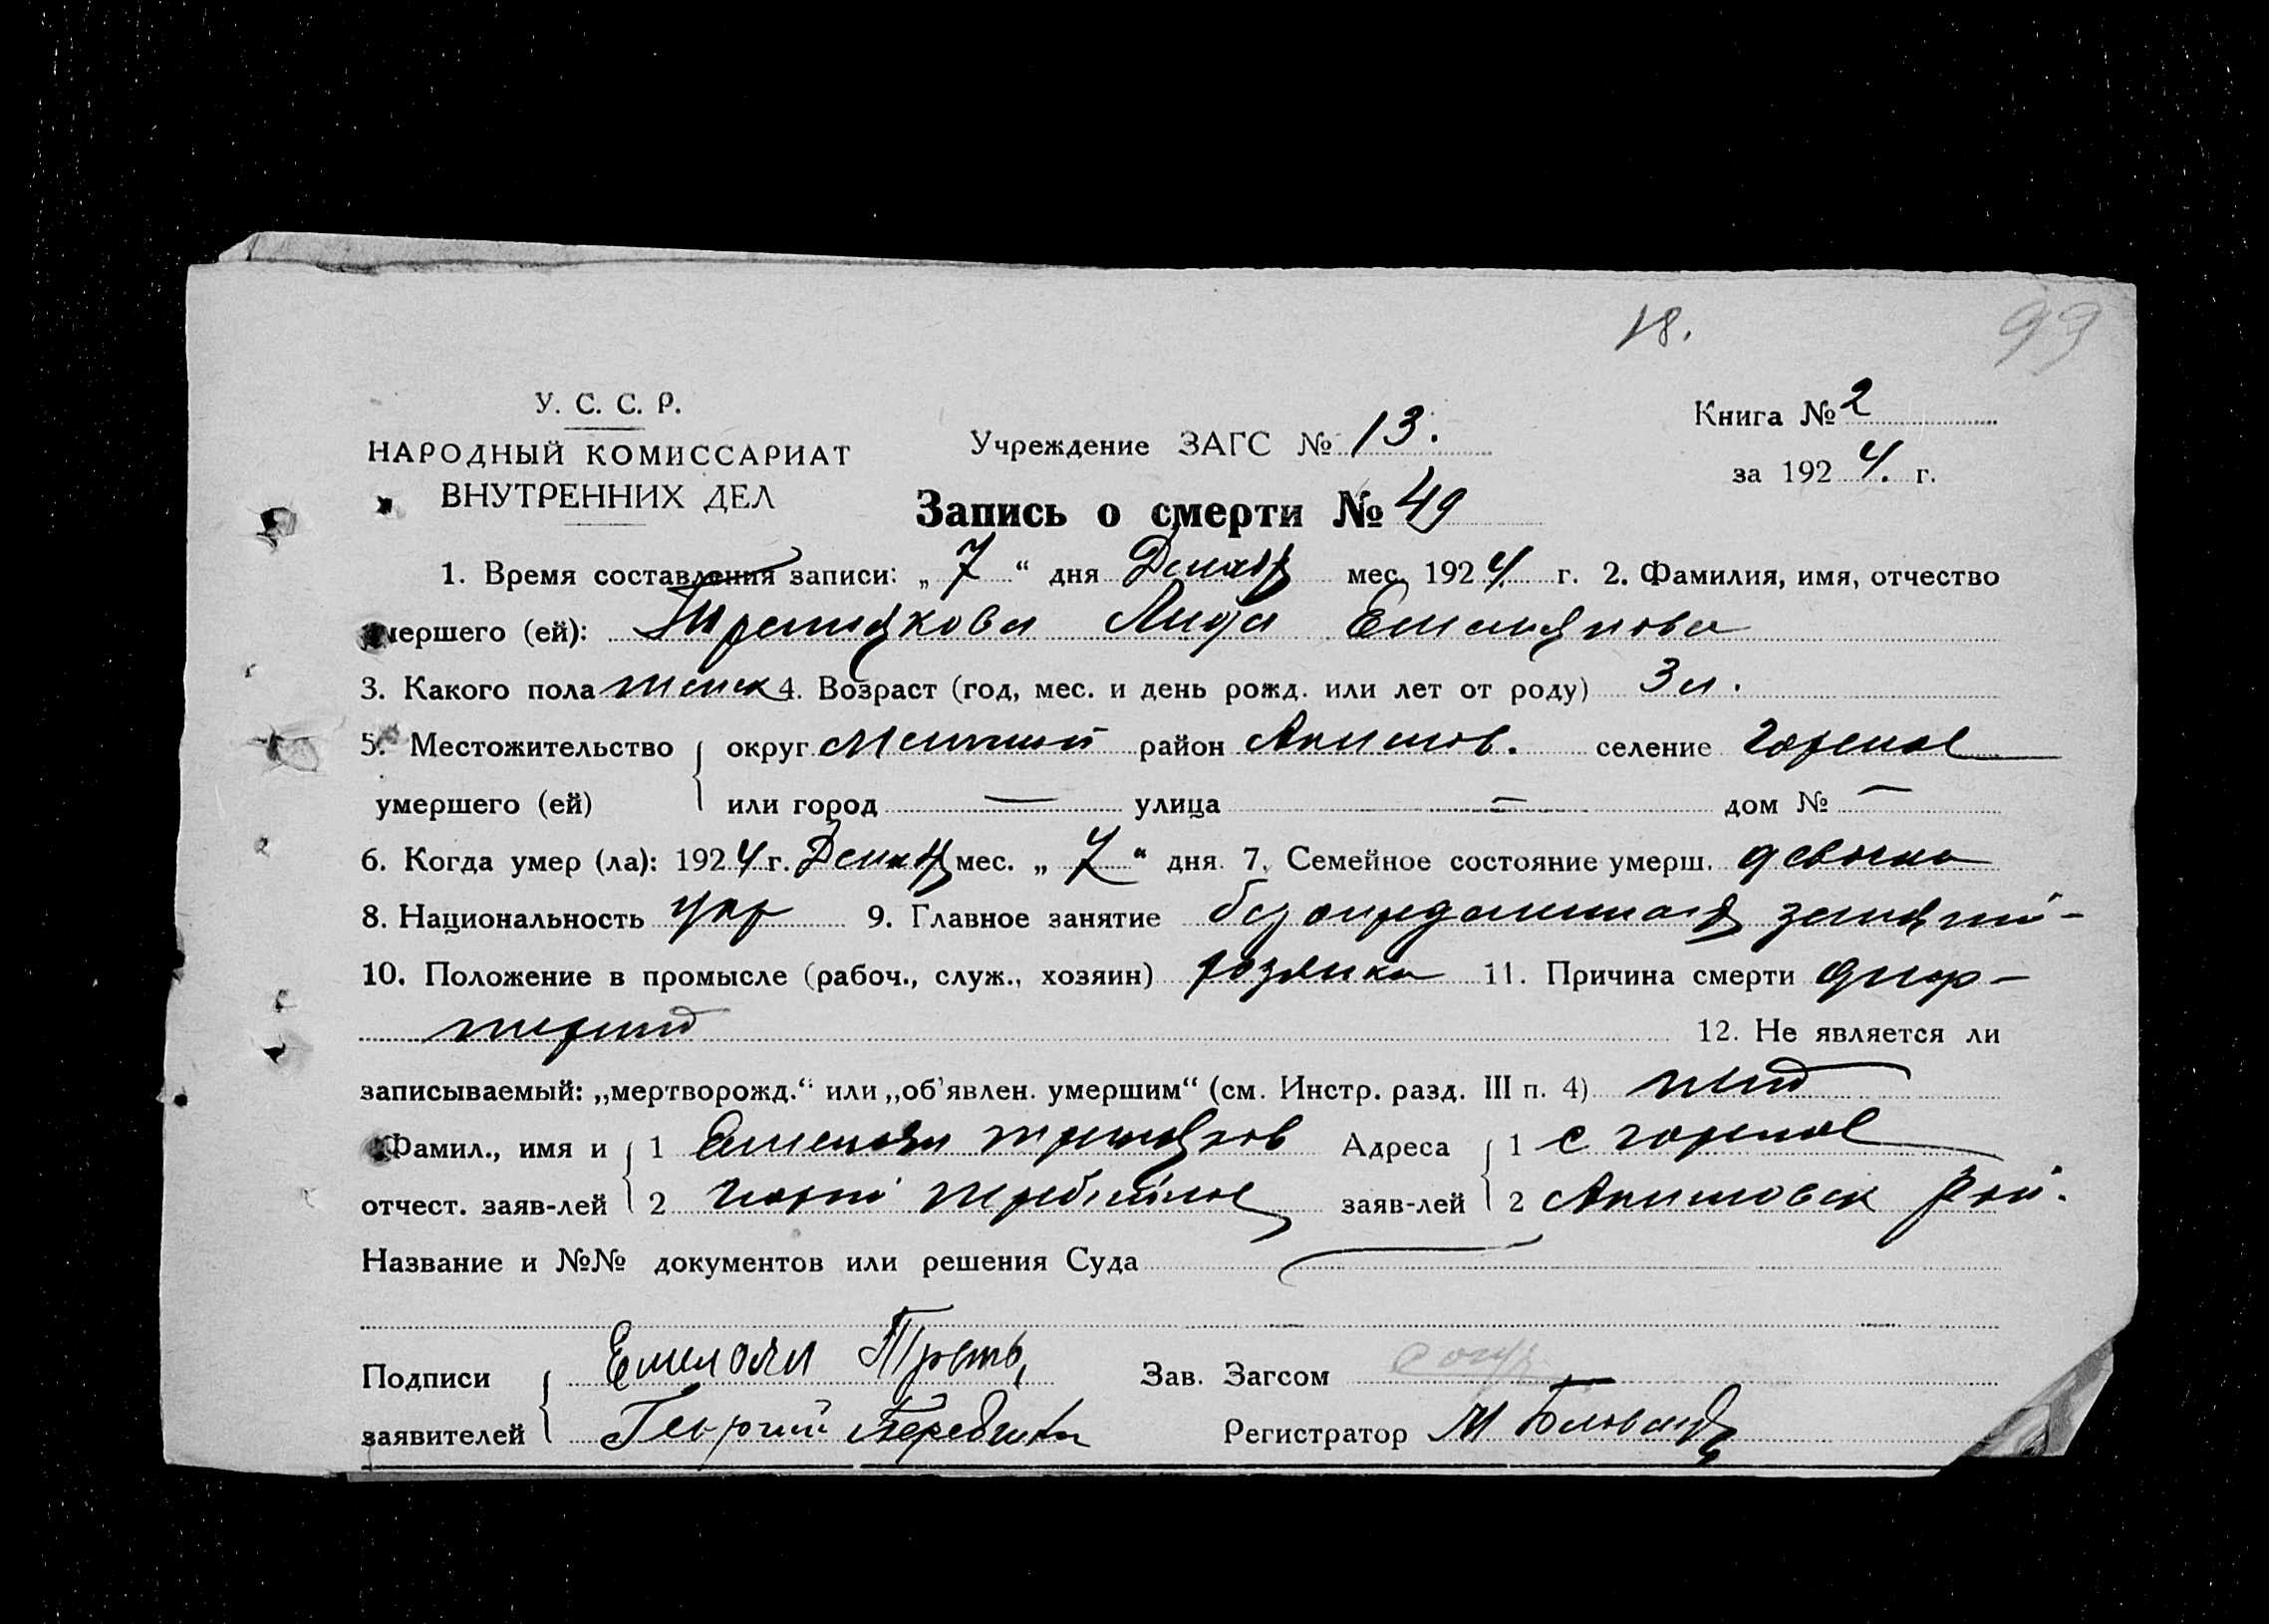 18. 99
У. С. С. Р.
НАРОДНЫЙ КОМИССАРИАТ
ВНУТРЕННИХ ДЕЛ
Учреждение ЗАГС № 13.
Книга № 2
за 1924. г.
Запись о смерти № 49
1. Время составления записи: „7“ дня Декабр мес. 1924. г. 2. Фамилия, имя, отчество
мершего (ей): Лида Емельянова
3. Какого пола женск 4. Возраст (год, мес. и день рожд. или лет от роду) 3 л.
5. Местожительство округ район Акимов. селение Горелое
умершего (ей) или город — улица — дом № —
6. Когда умер (ла): 1924 г. Декабр мес. „7“ дня 7. Семейное состояние умерш. девочка
8. Национальность укр 9. Главное занятие без занятий -
10. Положение в промысле (рабоч., служ., хозяин) хозяйка 11. Причина смерти диф-
терит 12. Не является ли
записываемый: „мертворожд.“ или „об'явлен. умершим“ (см. Инстр. разд. III п. 4) нет
Фамил., имя и 1 Емельян Адреса 1 с Горелое
отчест. заяв-лей 2 заяв-лей 2 Акимовск рай.
Название и №№ документов или решения Суда
Подписи Емелян Зав. Загсом
заявителей Георгий Регистратор М